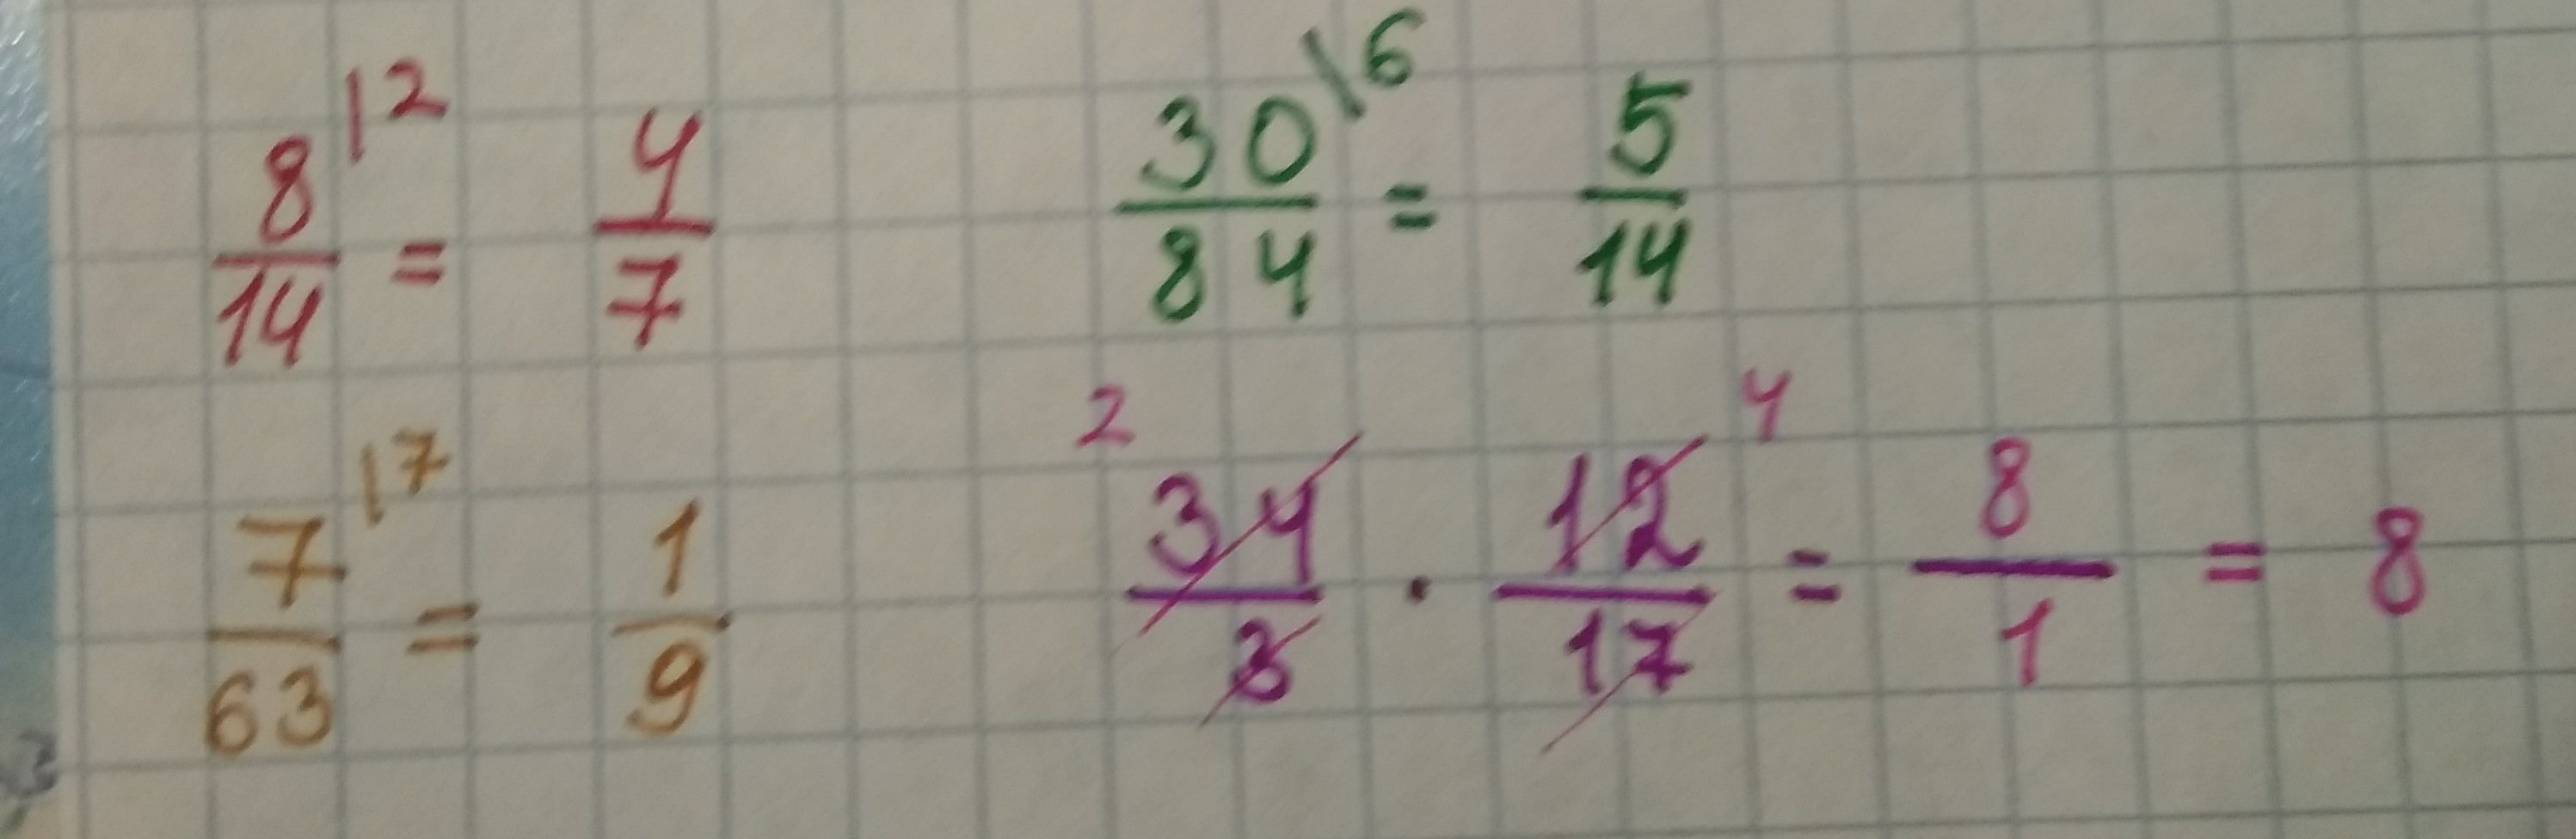 8/14 |2 = 4/7
30/84 \6 = 5/14
7/63 |7 = 1/9
2 34/3 · 12/17 4 = 8/1 = 8